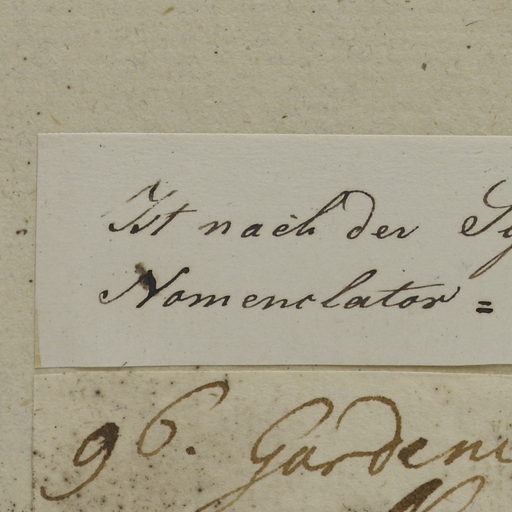 Ist nach der Sy
Nomenclator =
96. Gardeni